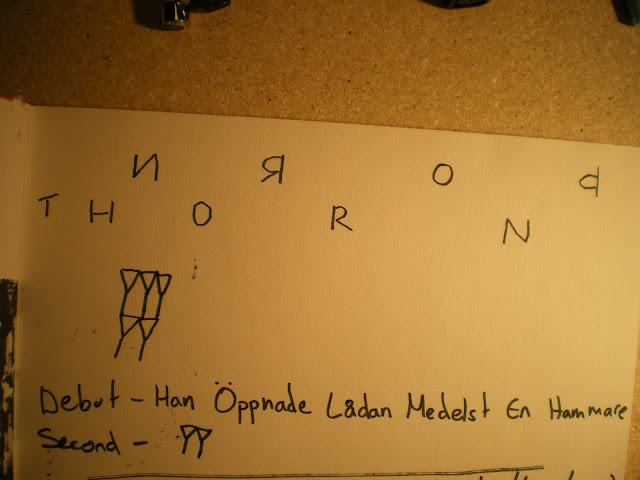 И Я O ꟼ
T H O R N
Debut - Han Öppnade Lådan Medelst En Hammare
Second -